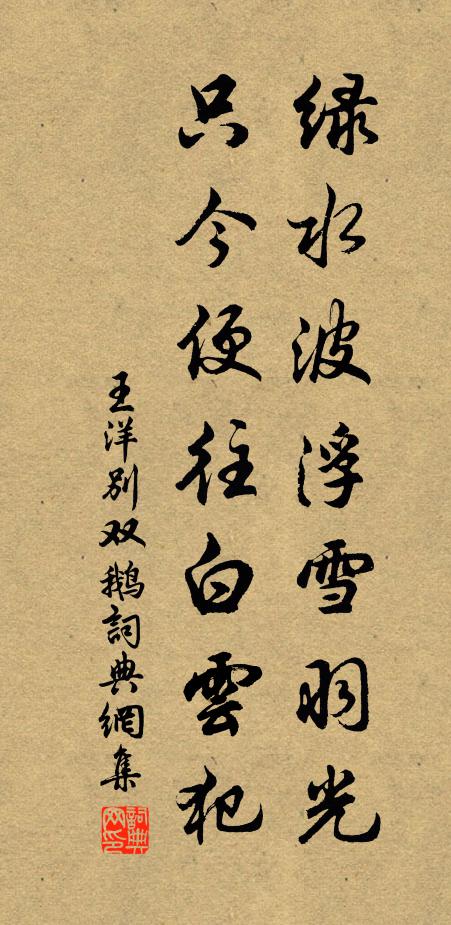 绿水波浮雪羽光
只今便往白雲犯
王洋别双鹅詞典網集
詞典网印